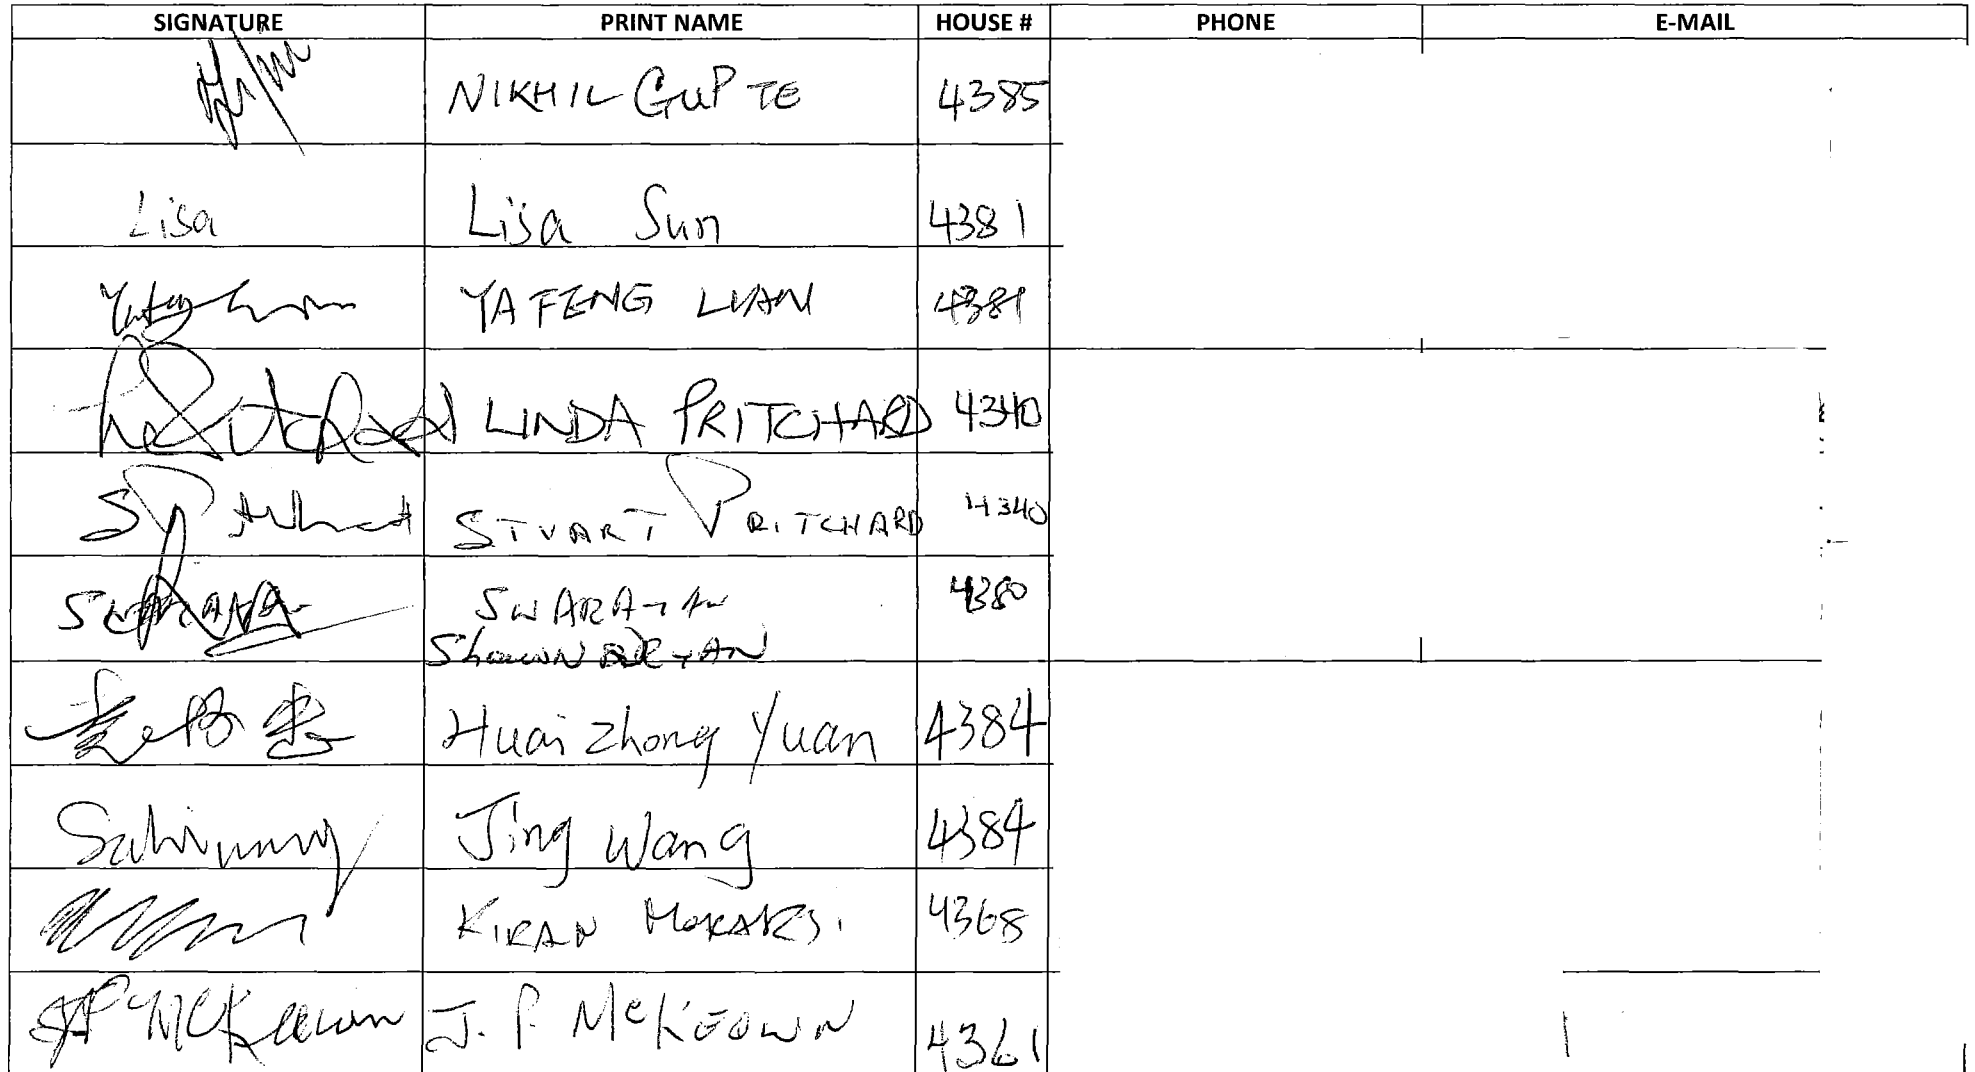 SIGNATURE PRINT NAME HOUSE # PHONE E-MAIL
NIKHIL GUPTE 4385
Lisa Lisa Sun 4381
YAFENG LUAN 4381
LINDA PRITCHARD 4340
STUART PRITCHARD 4340
4380
Huaizhong Yuan 4384
Jing Wang 4384
KIRAN 4368
JP McKeown J. P. McKEOWN 4361